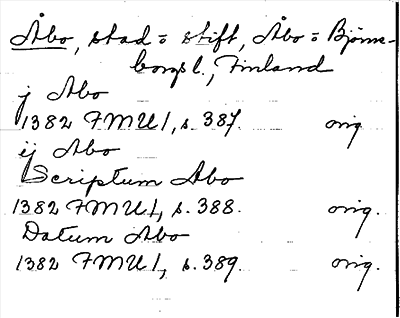 Åbo, stad = stift, Åbo = Björne-
borgs l., Finland
j Abo
1382 FMU 1, s. 387. orig.
ij Abo
Scriptum Abo
1382 FMU 1, s. 388. orig.
Datum Abo
1382 FMU 1, s. 389. orig.